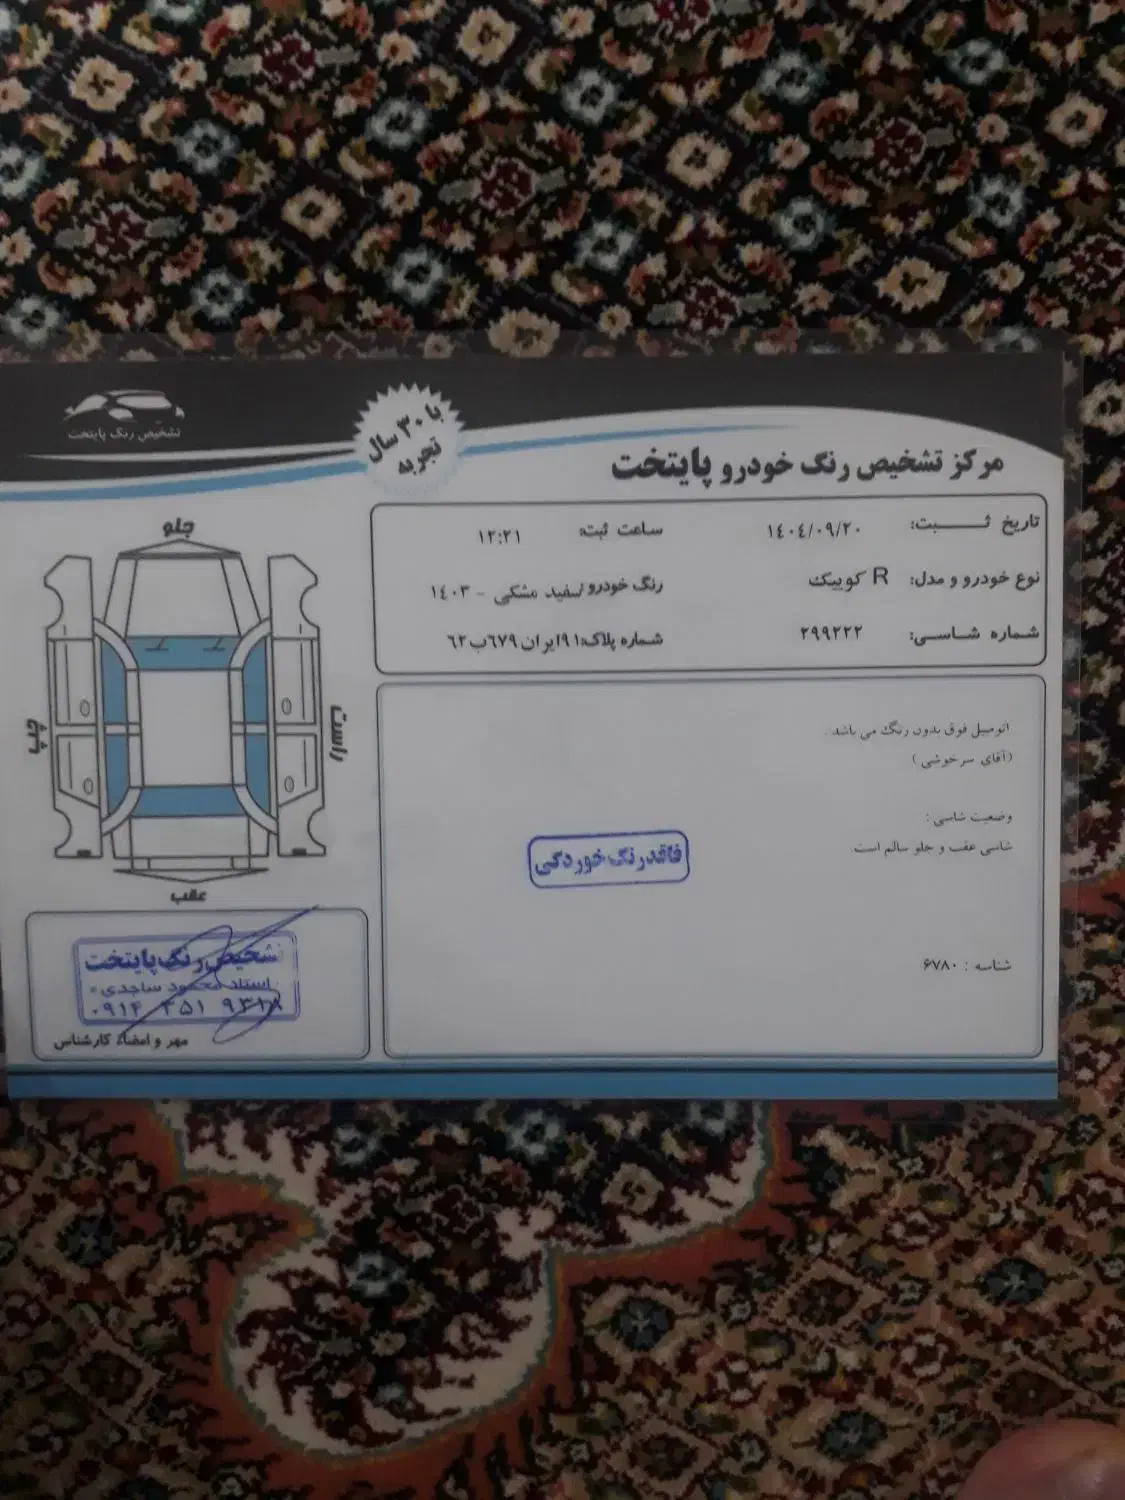 تشخیص رنگ پایتخت
با ۳۰ سال
تجربه
مرکز تشخیص رنگ خودرو پایتخت
تاریخ ثبت: ۱۴۰۴/۰۹/۲۰ ساعت ثبت: ۱۲:۲۱
نوع خودرو و مدل: R کوییک رنگ خودرو: سفید مشکی - ۱۴۰۳
شماره شاسی: ۲۹۹۲۲۲ شماره پلاک: ۹۱ایران ۶۷۹ب۶۲
اتومبیل فوق بدون رنگ می باشد .
(آقای سرخوشی )
وضعیت شاسی :
شاسی عقب و جلو سالم است
فاقد رنگ خوردگی
شناسه : ۶۷۸۰
جلو
چپ
راست
عقب
تشخیص رنگ پایتخت
استاد محمود ساجدی
۰۹۱۴ ۴۵۱ ۹۳۱۸
مهر و امضاء کارشناس